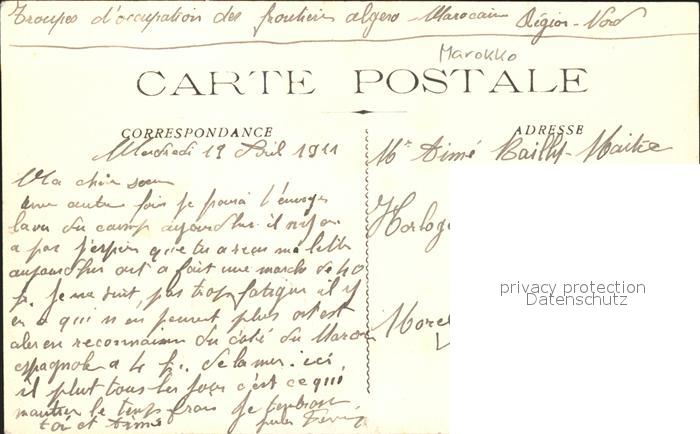 Troupes d'occupation des frontières algero-Marocain Région-Nord
Marokko
CARTE POSTALE
CORRESPONDANCE
ADRESSE
Mercredi 19 Avril 1911
Ma chère soeur
une autre fois je pourai t'envoyer
la vu du camp aujourdhui il n'yen
a pas j'espère que tu a reçu ma lettre
aujourdhui ont a fait une marche de 40
k. Je ne suit pas trop fatigué il y
en a qui n en peuvent plus ont est
aler en reconnaisan du coté du Maroc
espagnole a 4 k. de la mer. ici
il plut tous les jours c'est ce qui
maintien le temps frais Je t'embrasse
toi et Aimé
Mr Aimé Bailly-Maitre
Horloge
More
privacy protection
Datenschutz